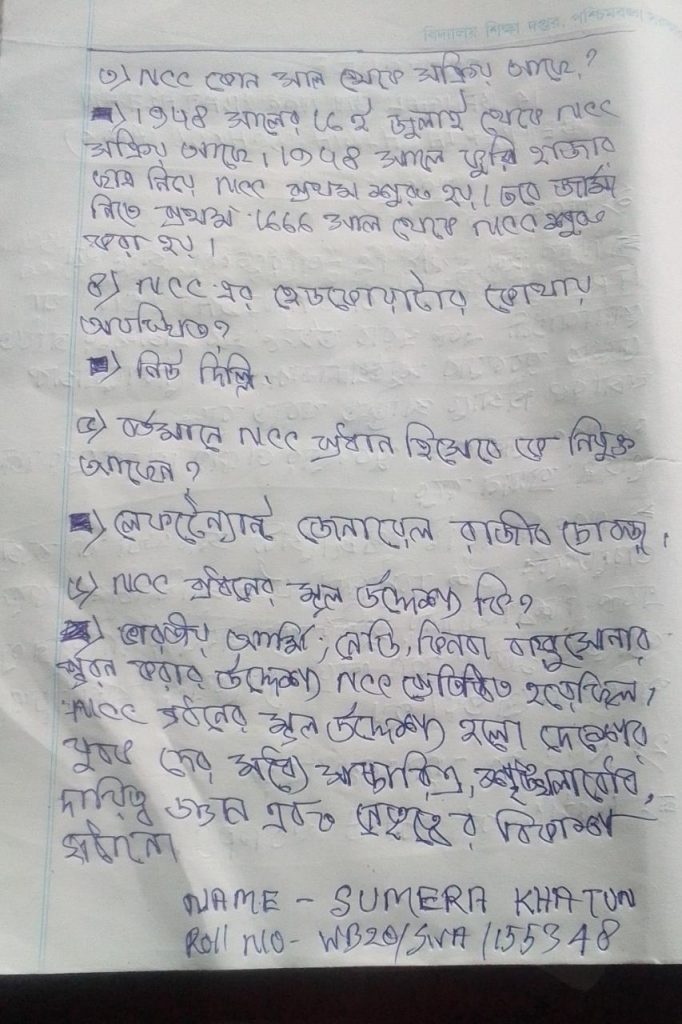 বিদ্যালয় শিক্ষা দপ্তর, পশ্চিমবঙ্গ
৩) NCC কোন সাল থেকে সক্রিয় আছে?
→) ১৯৪৪ সালের ১৬ ই জুলাই থেকে NCC
সক্রিয় আছে। ১৯৪৪ সালে কুরি হাজার
ছাত্র নিয়ে NCC প্রথম শুরু হয়। তবে জার্মা
নিতে প্রথম ১৬৬৬ সাল থেকে NCC শুরু
করা হয়।
৪) NCC এর হেডকোয়াটার কোথায়
অবস্থিত?
→) নিউ দিল্লি.
৫) বর্তমানে NCC প্রধান হিসেবে কে নিযুক্ত
আছেন?
→) লেফটেন্যান্ট জেনারেল রাজীব চোপড়া।
৬) NCC গঠনের মূল উদ্দেশ্য কি?
→) ভারতীয় আর্মি, নেভি, কিংবা বায়ুসেনার
পূরন করার উদ্দেশ্য NCC হয়েছিল,
NCC গঠনের মূল উদ্দেশ্য হলো দেশের
যুবক দের মধ্যে শৃঙ্খলাবোধ,
দায়িত্ব জ্ঞান এবং নেতৃত্বের বিকাশ
ঘটানো।
NAME - SUMERA KHATUN
ROll NO- WB20/SWA/155348